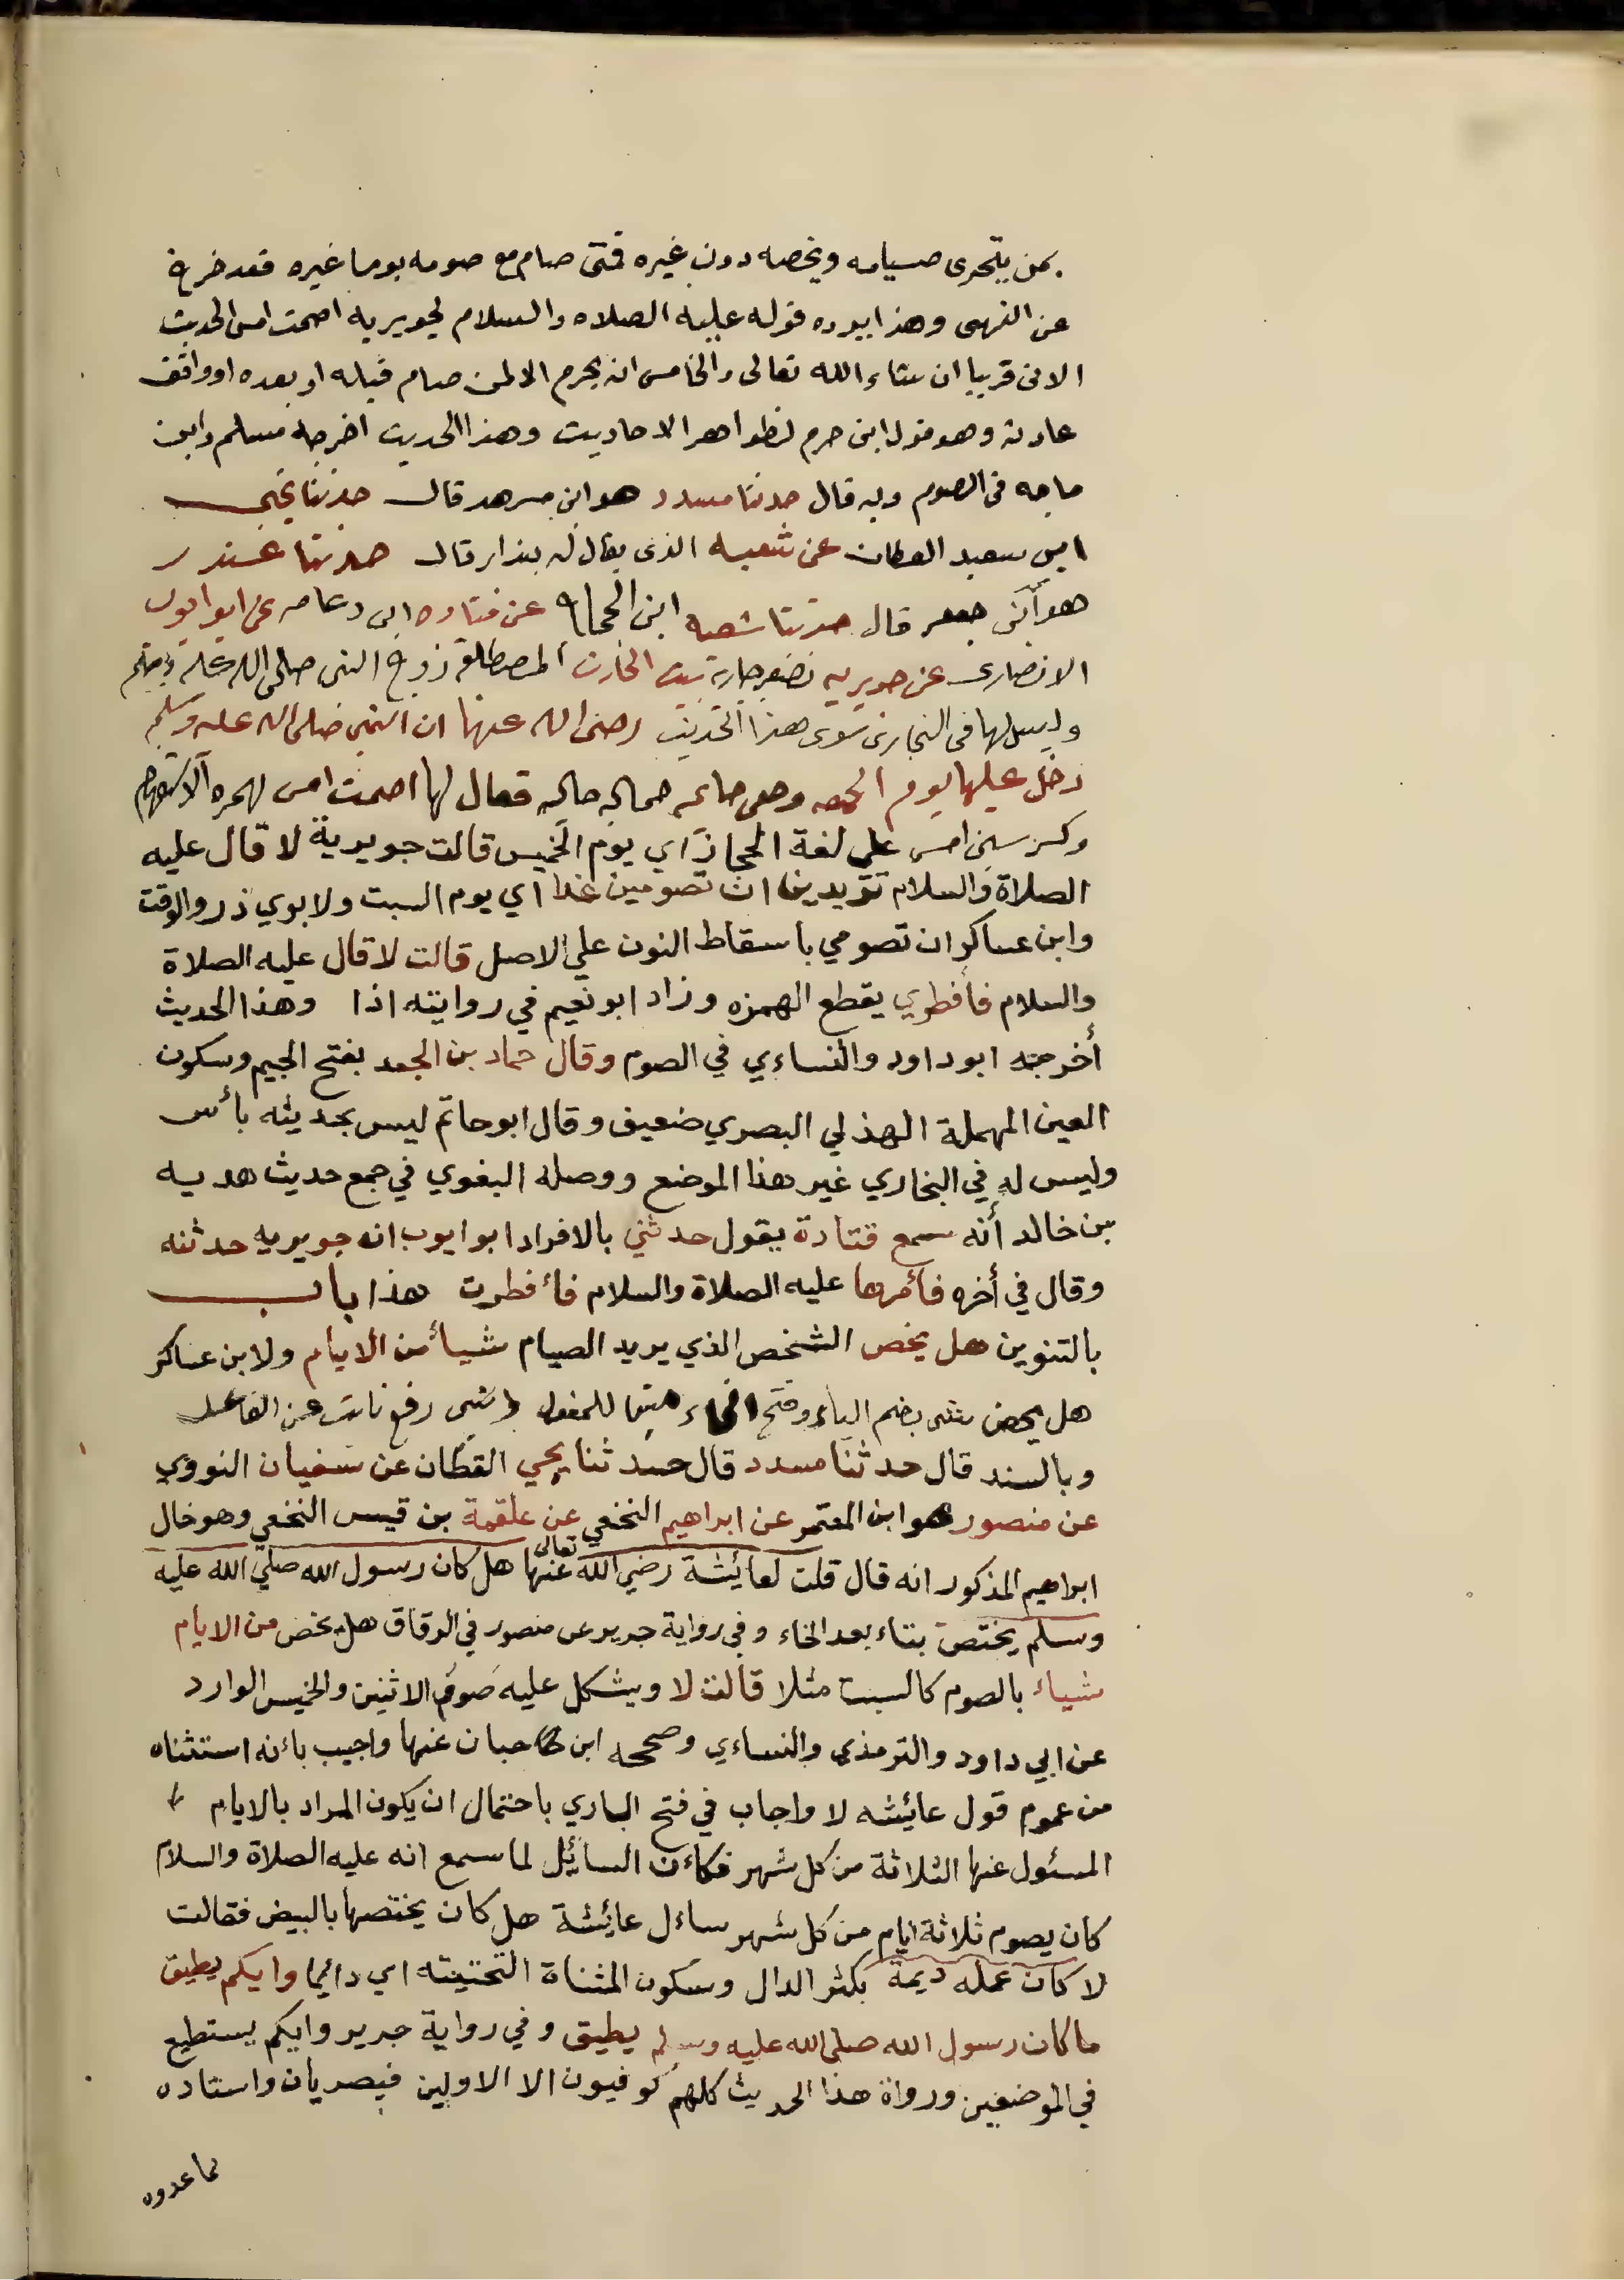 بمن يتحرى صيامه ويخصه دون غيره فمتى صام مع صومه يوما غيره فقد خرج
عن النهى وهذا ييرده قوله عليه الصلاه والسلام لجويريه اصمت امس الحديث
الاتى قريبا ان شاء الله تعالى والخامس انه يحرم الا لمن صام قبله او بعده او وافق
عادته وهو قول ابن حزم لظواهر الاحاديث وهذا الحديث اخرجه مسلم وابن
ماجه فى الصوم وبه قال حدثنا مسدد هو ابن مسرهد قال حدثنا يحيى
ابن سعيد القطان عن شعبه الذى يقال له بندار قال حدثنا غندر
هو ابن جعفر قال حدثنا شعبه ابن الحجاج عن قتاده ابن دعامه عن ابو ايوب
الانصارى عن جويريه تصغير جاريه بنت الحارث المصطلق زوج النبى صلى الله عليه وسلم
وليس لها فى البخارى سوى هذا الحديث رضى الله عنها ان النبى صلى الله عليه وسلم
دخل عليها يوم الجمعه وهى صائمه جماله حاليه فقال لها اصمت امس بهمزه الاستفهام
وكسر سين امس على لغة الحجاز اي يوم الخميس قالت جويرية لا قال عليه
الصلاة والسلام تريدين ان تصومين غدا اي يوم السبت ولابوي ذر والوقت
وابن عساكر ان تصومي باسقاط النون علي الاصل قالت لا قال عليه الصلاة
والسلام فأفطري يقطع الهمزه وزاد ابو نعيم في روايته اذا وهذا الحديث
أخرجته ابو داود والنساءي في الصوم وقال حماد بن الجعد بفتح الجيم وسكون
العين المهملة الهذلي البصري ضعيف وقال ابو حاتم ليس بحديثه بأس
وليس له في البخاري غير هذا الموضع ووصله البغوي في جمع حديث هديه
بن خالد أنه سمع قتادة يقول حدثني بالافراد ابو ايوب ان جويريه حدثته
وقال في أخره فأمرها عليه الصلاة والسلام فأفطرت هذا باب
بالتنوين هل يخص الشخص الذي يريد الصيام شيأ من الايام ولابن عساكر
هل يخص شى بضم الياء وفتح الخاء مبنيا للمفعول وشى رفع نائب عن الفاعل
وبالسند قال حدثنا مسدد قال حدثنا يحيي القطان عن سفيان النووي
عن منصور هو ابن المعتمر عن ابراهيم النخعي عن علقمة بن قيس النخعي وهو خال
ابراهيم المذكور انه قال قلت لعائشة رضي الله تعالى عنها هل كان رسول الله صلي الله عليه
وسلم يختص بتاء بعد الخاء وفي رواية جرير عن منصور في الرقاق هل يخص من الايام
شياء بالصوم كالسبت مثلا قالت لا ويشكل عليه صوم الاثنين والخميس الوارد
عن ابي داود والترمذي والنساءي وصححه ابن حبان عنها واجيب بأنه استثناه
من عموم قول عائشه لا واجاب في فتح الباري باحتمال ان يكون المراد بالايام
المسئول عنها الثلاثة من كل شهر فكاءن السائل لما سمع انه عليه الصلاة والسلام
كان يصوم ثلاثة ايام من كل شهر ساءل عائشة هل كان يختصها بالبيض فقالت
لا كان عمله ديمة بكسر الدال وسكون المثناة التحتيته اي دائما وايكم يطيق
ما كان رسول الله صلى الله عليه وسلم يطيق وفي رواية جرير وايكم يستطيع
في الموضعين ورواة هذا الحديث كلهم كوفيون الا الاولين فبصريان واستاده
مما عدوه